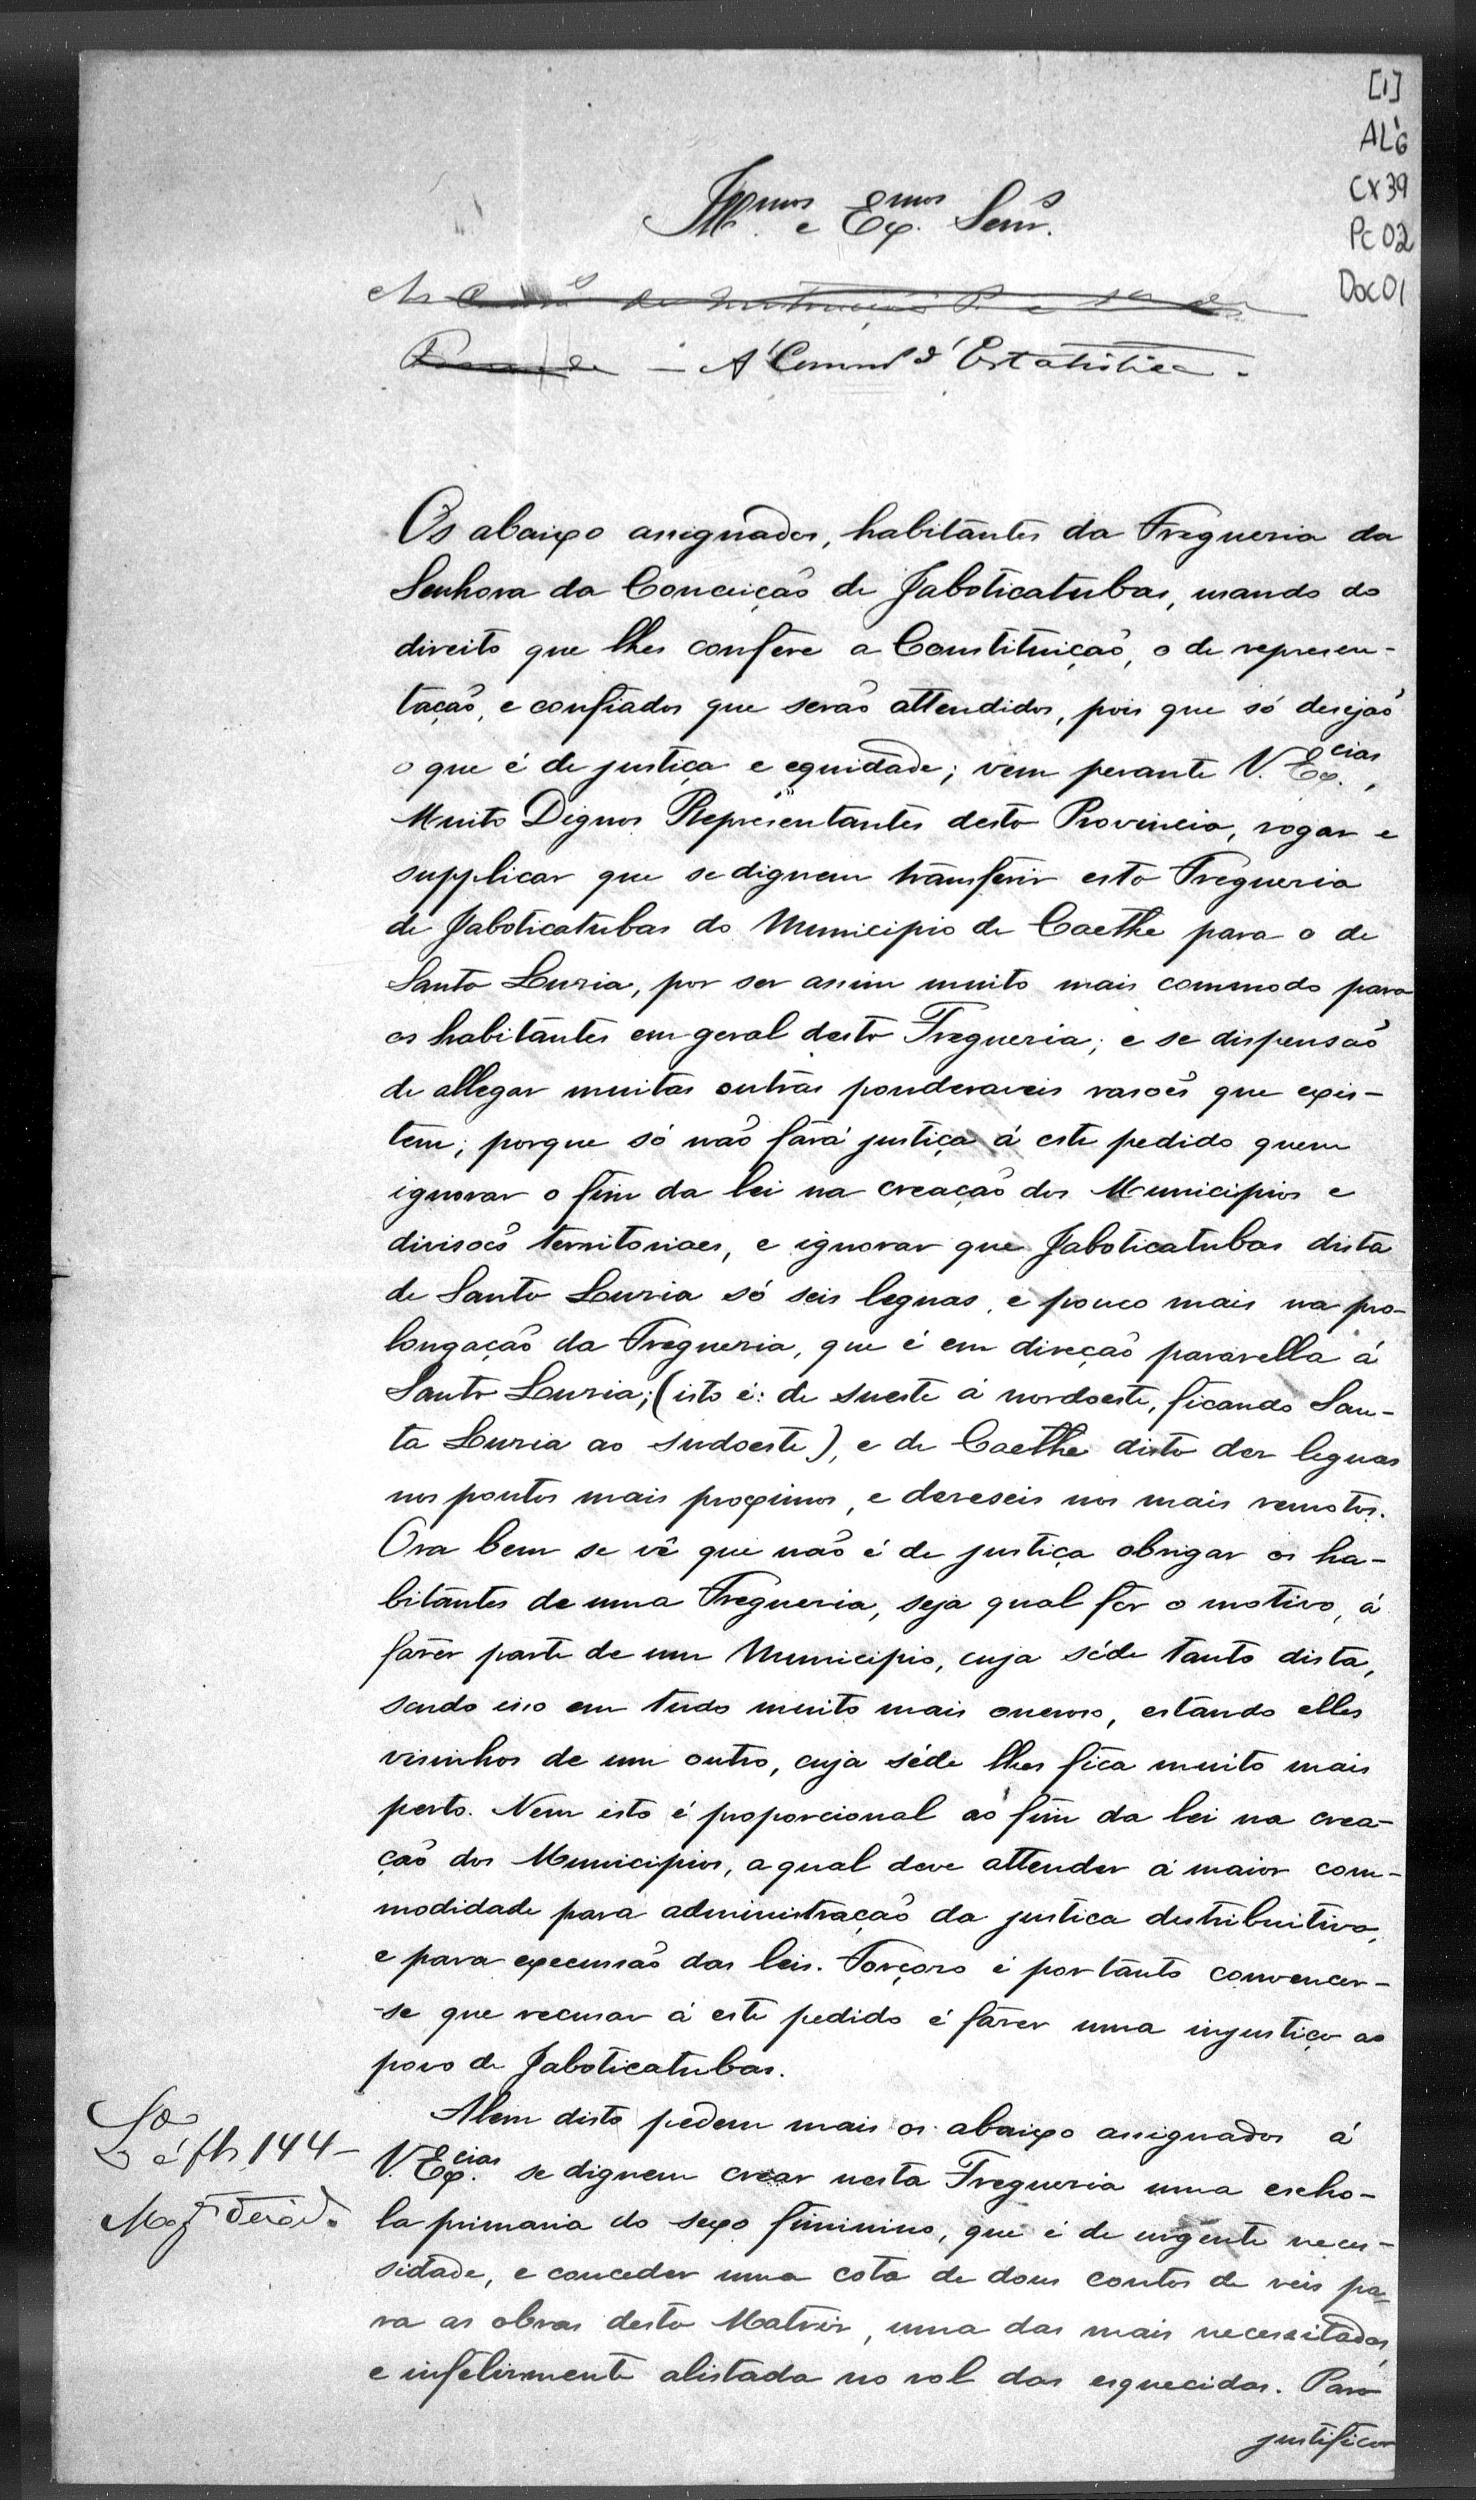 [1]
AL6
Cx39
Pc02
Doc01
Ill.mos e Ex.mos Senr.s
Ás Com.s de Instrucção P. e
Fazenda - Á Comm. d'Estatistica.
Os abaixo assignados, habitantes da Freguezia da
Senhora da Conceição de Jaboticatubas, usando do
direito que lhes confere a Constituição, o de represen-
tação, e confiados que serão attendidos, pois que só desejão
o que é de justiça e equidade; vem perante V. Ex.cias,
Muito Dignos Representantes desta Provincia, rogar e
supplicar que se dignem transferir esta Freguezia
de Jaboticatubas do Municipio de Caethe para o de
Santa Luzia, por ser assim muito mais commodo para
os habitantes em geral desta Freguezia; e se dispensão
de allegar muitas outras ponderaveis rasões que exis-
tem; porque só não fará justiça á este pedido quem
ignorar o fim da lei na creação dos Municipios e
divisoes territoriaes, e ignorar que Jaboticatubas dista
de Santa Luzia só seis leguas, e pouco mais na pro-
longação da Freguezia, que é em direção pararella á
Santa Luzia; (isto é: de sueste á nordoeste, ficando San-
ta Luzia ao sudoeste), e de Caethe dista dez leguas
nos pontos mais proximos, e dezeseis nos mais remotos.
Ora bem se vê que não é de justiça obrigar os ha-
bitantes de uma Freguezia, seja qual for o motivo, á
fazer parte de um Municipio, cuja séde tanto dista,
sendo isso em tudo muito mais oneroso, estando elles
visinhos de um outro, cuja séde lhes fica muito mais
perto. Nem isto é proporcional ao fim da lei na crea-
ção dos Municipios, a qual deve attender á maior com-
modidade para administração da justica destribuitiva,
e para execussão das leis. Forçozo é portanto convencer-
-se que recusar á este pedido é fazer uma injustiça ao
povo de Jaboticatubas.
Alem disto pedem mais os abaixo assignados á
V. Ex.cias se dignem crear nesta Freguezia uma escho-
la primaria do sexo fiminino, que é de urgente neces-
sidade, e conceder uma cota de dous contos de reis pa-
ra as obras desta Matriz, uma das mais necessitadas,
e infelizmente alistada no rol das esquecidas. Para
justificar
L.o
á fls 144-